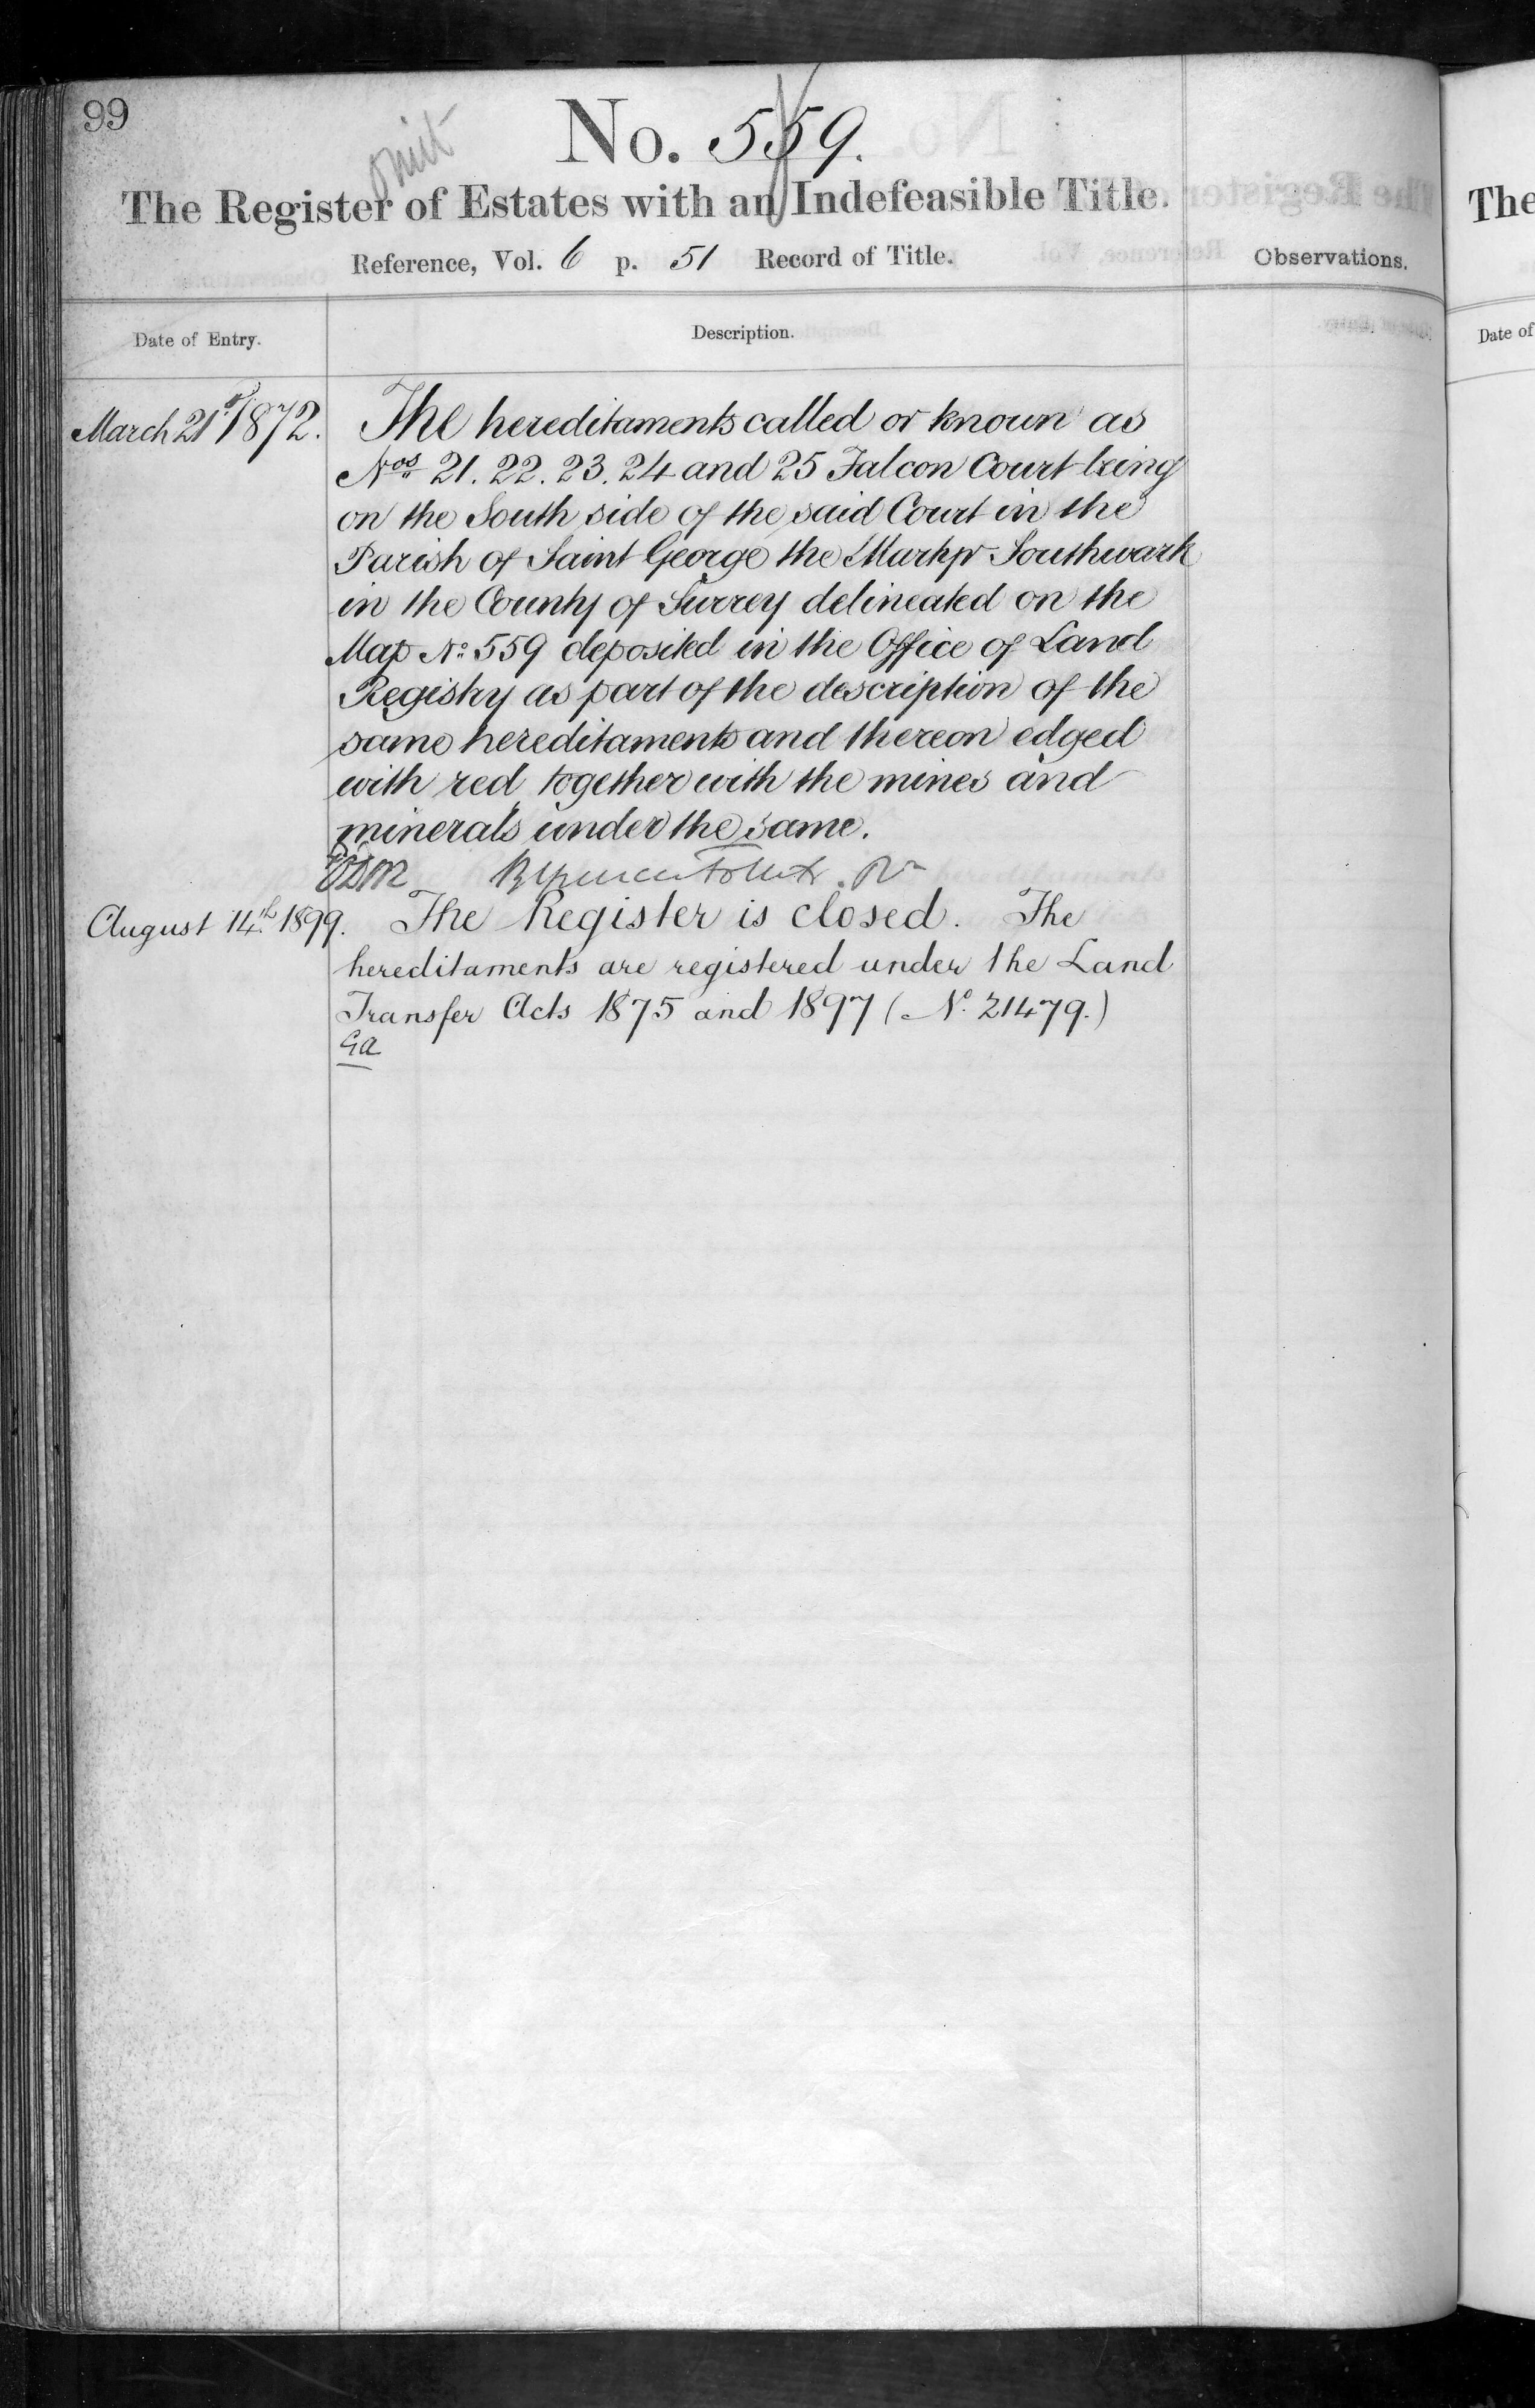 99
No. 559.
omit
The Register of Estates with an Indefeasible Title.
Reference, Vol. 6 p. 51 Record of Title.
Observations.
Date of Entry.
Description.
March 21st 1872.
The hereditaments called or known as
Nos 21. 22. 23. 24 and 25 Falcon Court being
on the South side of the said Court in the
Parish of Saint George the Martyr Southwark
in the County of Surrey delineated on the
Map No. 559 deposited in the Office of Land
Registry as part of the description of the
same hereditaments and thereon edged
with red together with the mines and
minerals under the same.
August 14th 1899.
The Register is closed. The
hereditaments are registered under the Land
Transfer Acts 1875 and 1897 (No. 21479.)
Ga
The
Date of